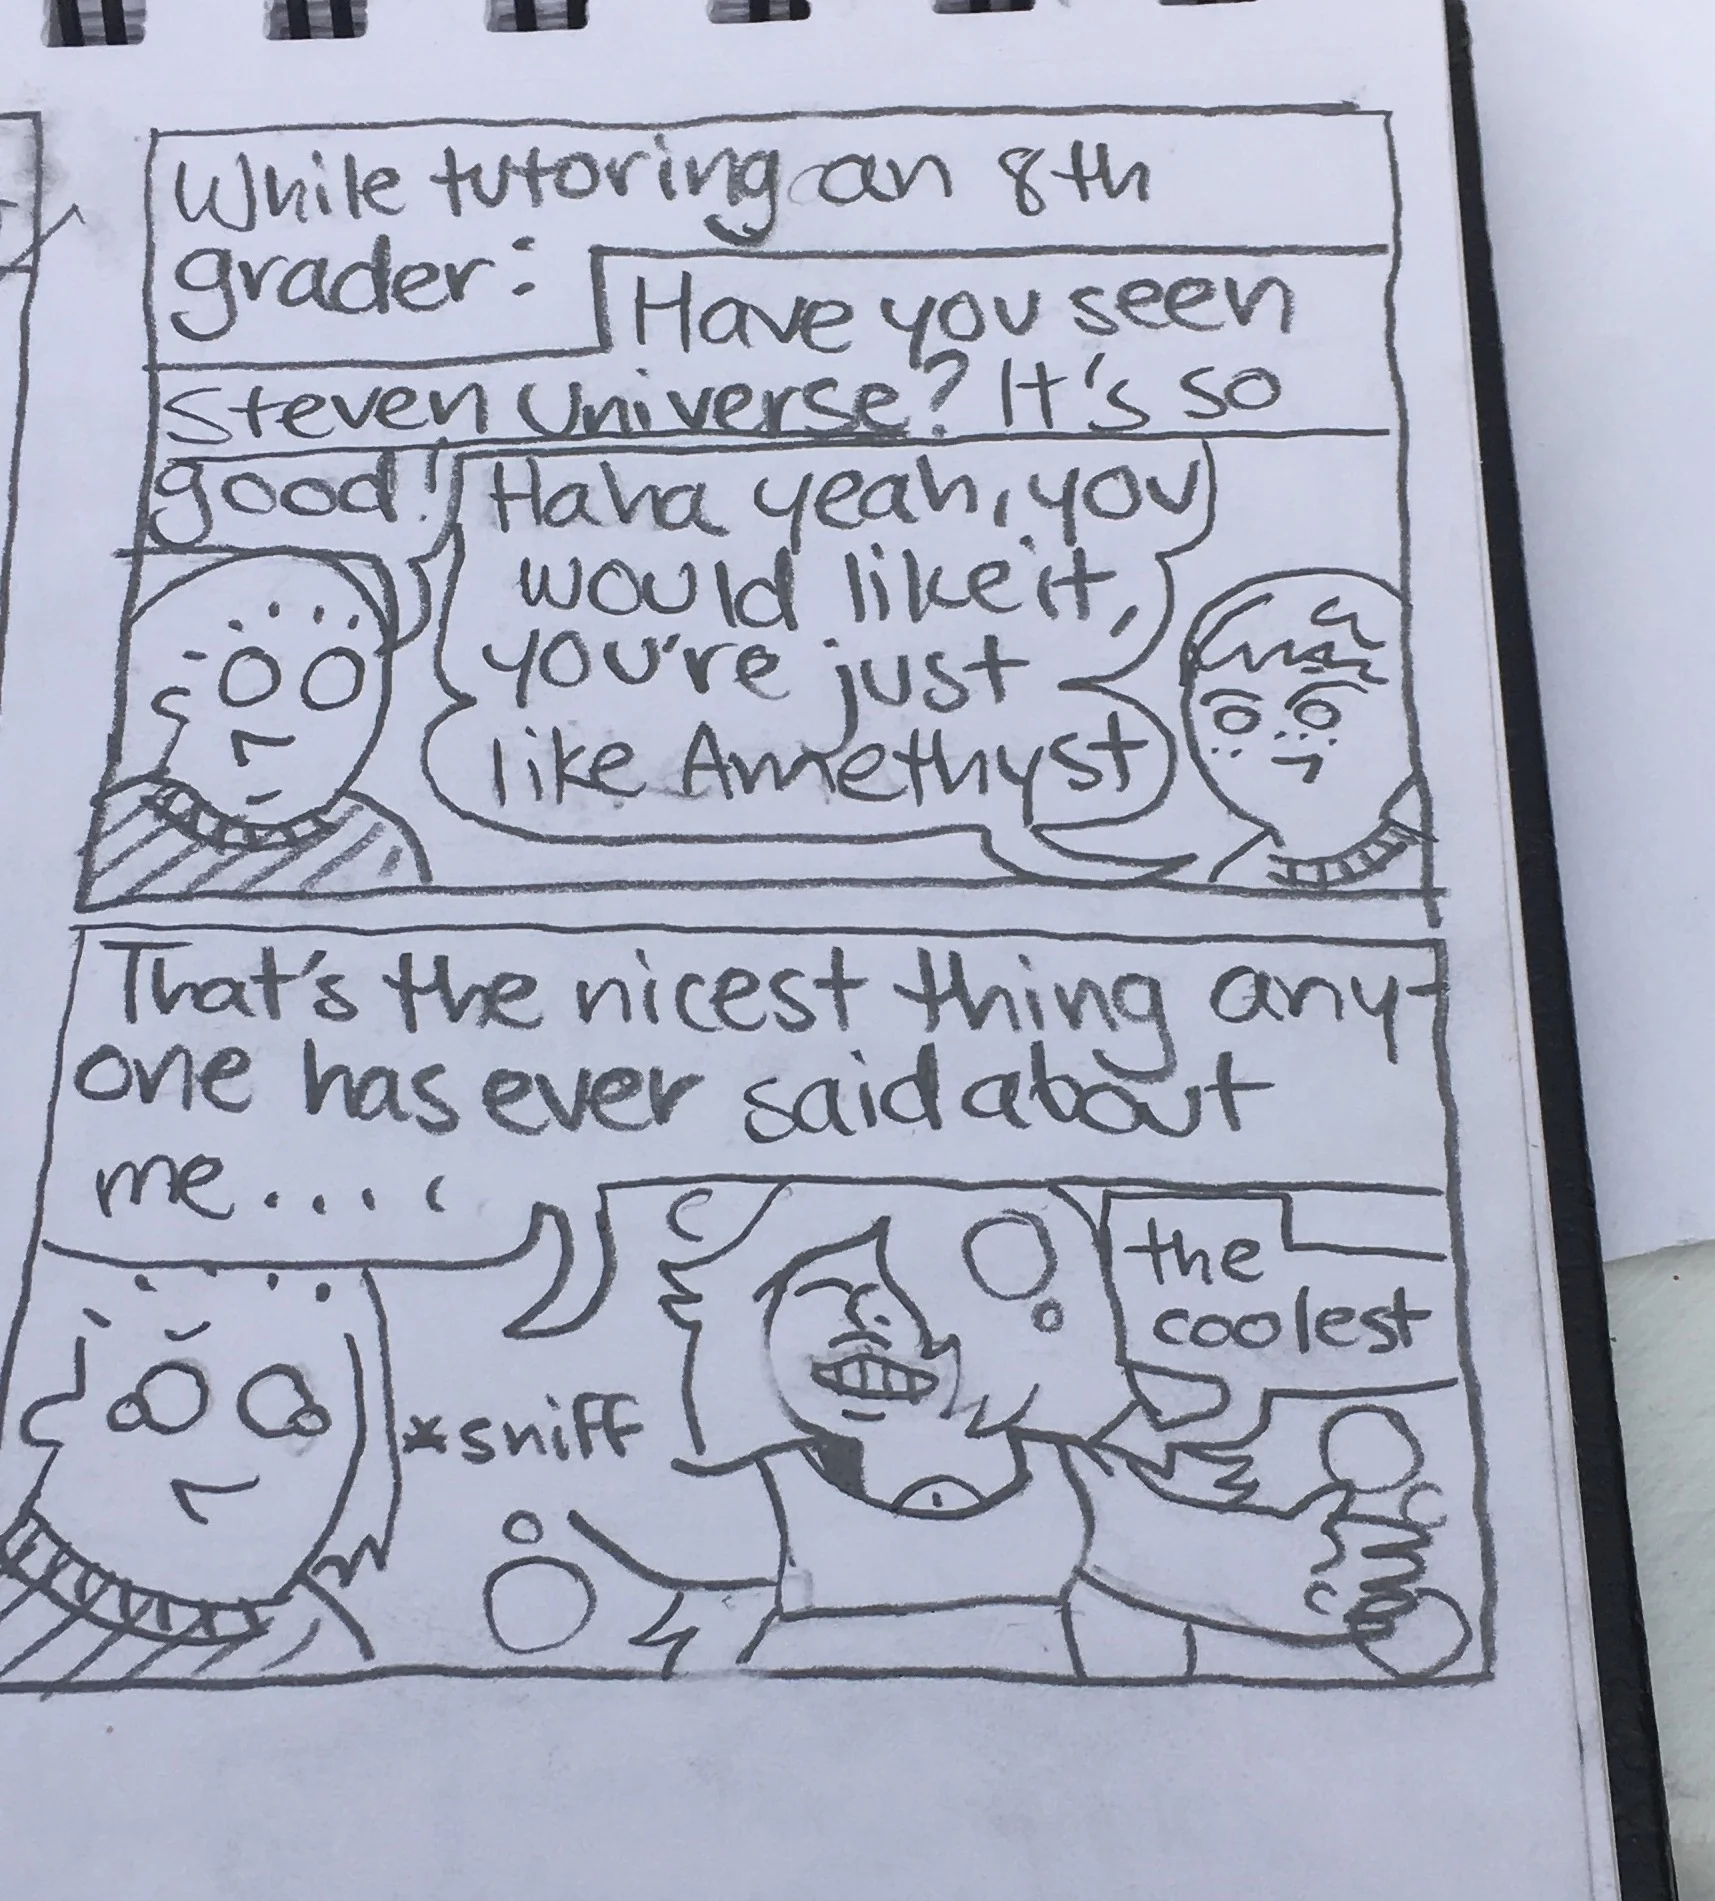 While tutoring an 8th
grader:
Have you seen
Steven Universe? It's so
good!
Haha yeah, you
would like it,
you're just
like Amethyst
That's the nicest thing any-
one has ever said about
me....
*sniff
the
coolest